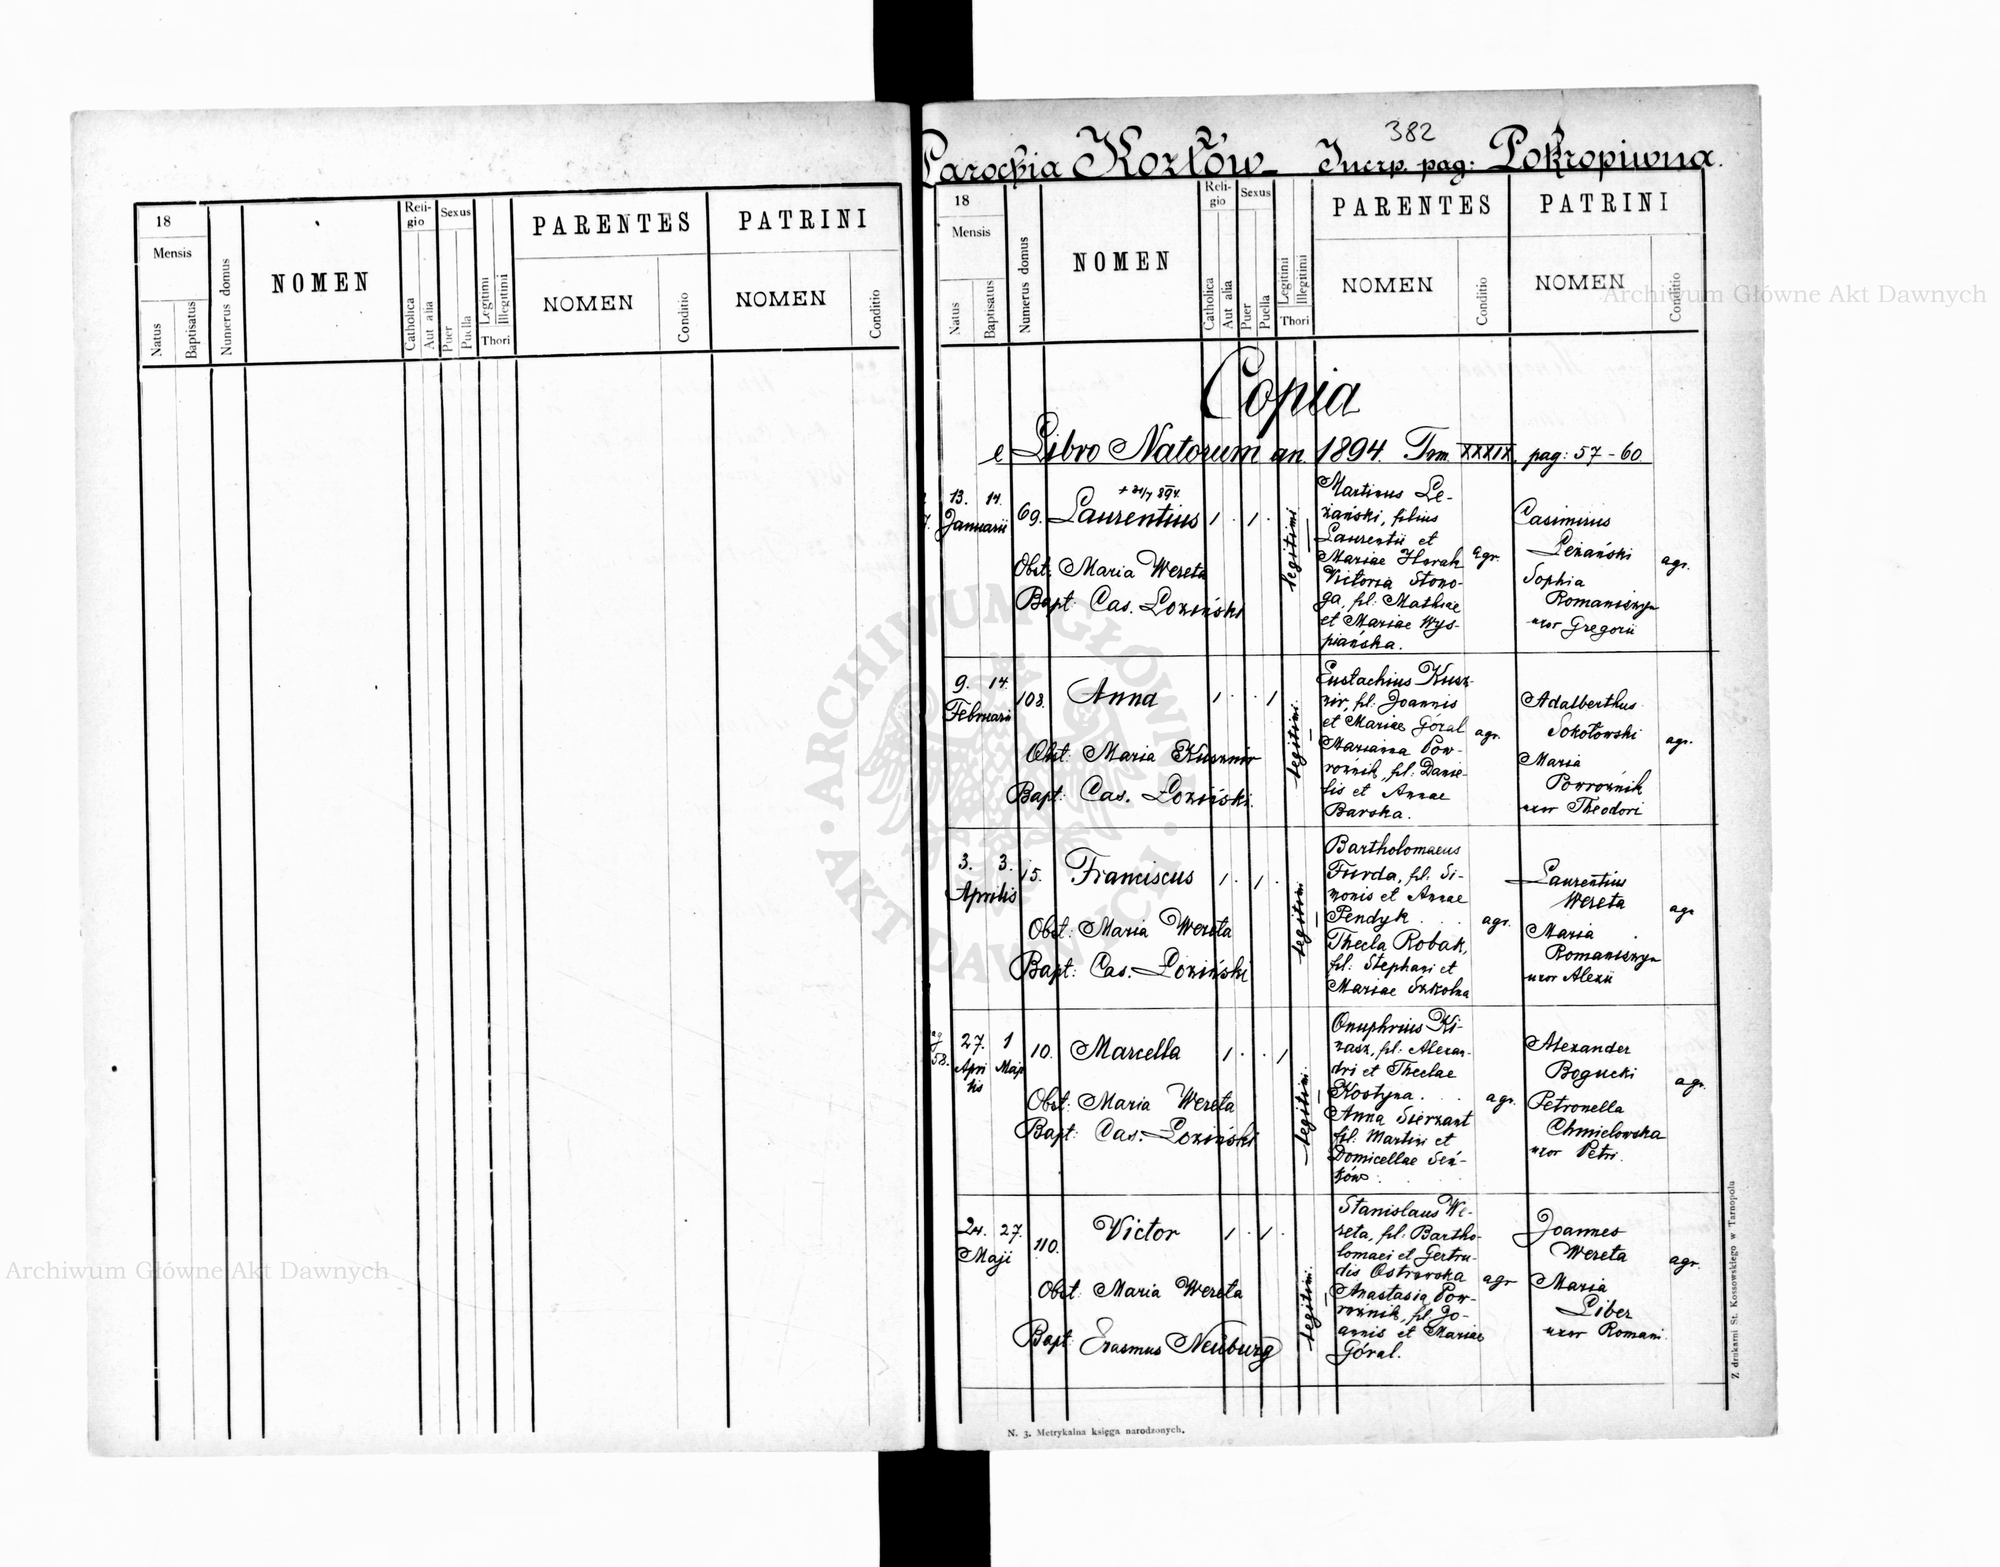 382
Parochia Kozłów Incrp. pag: Pokropiwna.
18
Mensis
Natus
Baptisatus
Numerus domus
NOMEN
Religio
Catholica
Aut alia
Sexus
Puer
Puella
Legitimi
Illegitimi
Thori
PARENTES
NOMEN
Conditio
PATRINI
NOMEN
Conditio
18
Mensis
Natus
Baptisatus
Numerus domus
NOMEN
Religio
Catholica
Aut alia
Sexus
Puer
Puella
Legitimi
Illegitimi
Thori
PARENTES
NOMEN
Conditio
PATRINI
NOMEN
Conditio
Copia
e Libro Natorum an. 1894. Tom XXXIX. pag: 57-60
13. 14.
Januarii
69.
Laurentius
1 . 1 .
Obst: Maria Wereta
Bapt: Cas. Łoziński
legitimi
Martinus Le-
żański, filius
Laurentii et
Mariae Horah
Victoria Stono-
ga, fil: Mathiae
et Mariae Wys-
piańska.
agr.
Casimirus
Leżański
Sophia
Romaniszyn
uxor Gregorii
agr.
9. 14.
Februarii
108.
Anna
1 . . 1
Obst: Maria Kusznir
Bapt: Cas. Łoziński.
legitimi.
Eustachius Kusz-
nir, fil: Joannis
et Mariae Góral
Marianna Pow-
roźnik, fil: Danie-
lis et Annae
Barska.
agr.
Adalberthus
Sokołowski
Maria
Powroźnik
uxor Theodori
agr.
3. 3.
Aprilis
15.
Franciscus
1 . 1 .
Obst: Maria Wereta
Bapt: Cas. Łoziński
legitimi
Bartholomaeus
Furda, fil: Si-
monis et Annae
Pendyk . . .
Thecla Robak,
fil: Stephani et
Mariae Szkolna
agr.
Laurentius
Wereta
Maria
Romaniszyn
uxor Alexii
agr
58.
27. 1
Apri Maji
lis
10.
Marcella
1 . . 1
Obst: Maria Wereta
Bapt: Cas. Łoziński
legitimi.
Onuphrius Ki-
nasz, fil: Alexan-
dri et Theclae
Kostyna . .
Anna Sierzant
fil: Martini et
Domicellae Sen-
ków
agr.
Alexander
Bogucki
Petronella
Chmielowska
uxor Petri.
agr.
24. 27.
Maji
110.
Victor
1 . 1 .
Obst: Maria Wereta
Bapt: Erasmus Neuburg
legitimi.
Stanislaus We-
reta, fil: Bartho-
lomaei et Gertru-
dis Ostrowska
Anastasia Pow-
roźnik, fil: Jo-
annis et Mariae
Góral.
agr
Joannes
Wereta
Maria
Liber
uxor Romani.
agr.
N. 3. Metrykalna księga narodzonych.
Z drukarni St. Kossowskiego w Tarnopolu
Archiwum Główne Akt Dawnych
Archiwum Główne Akt Dawnych
ARCHIWUM GŁÓWNE
AKT DAWNYCH